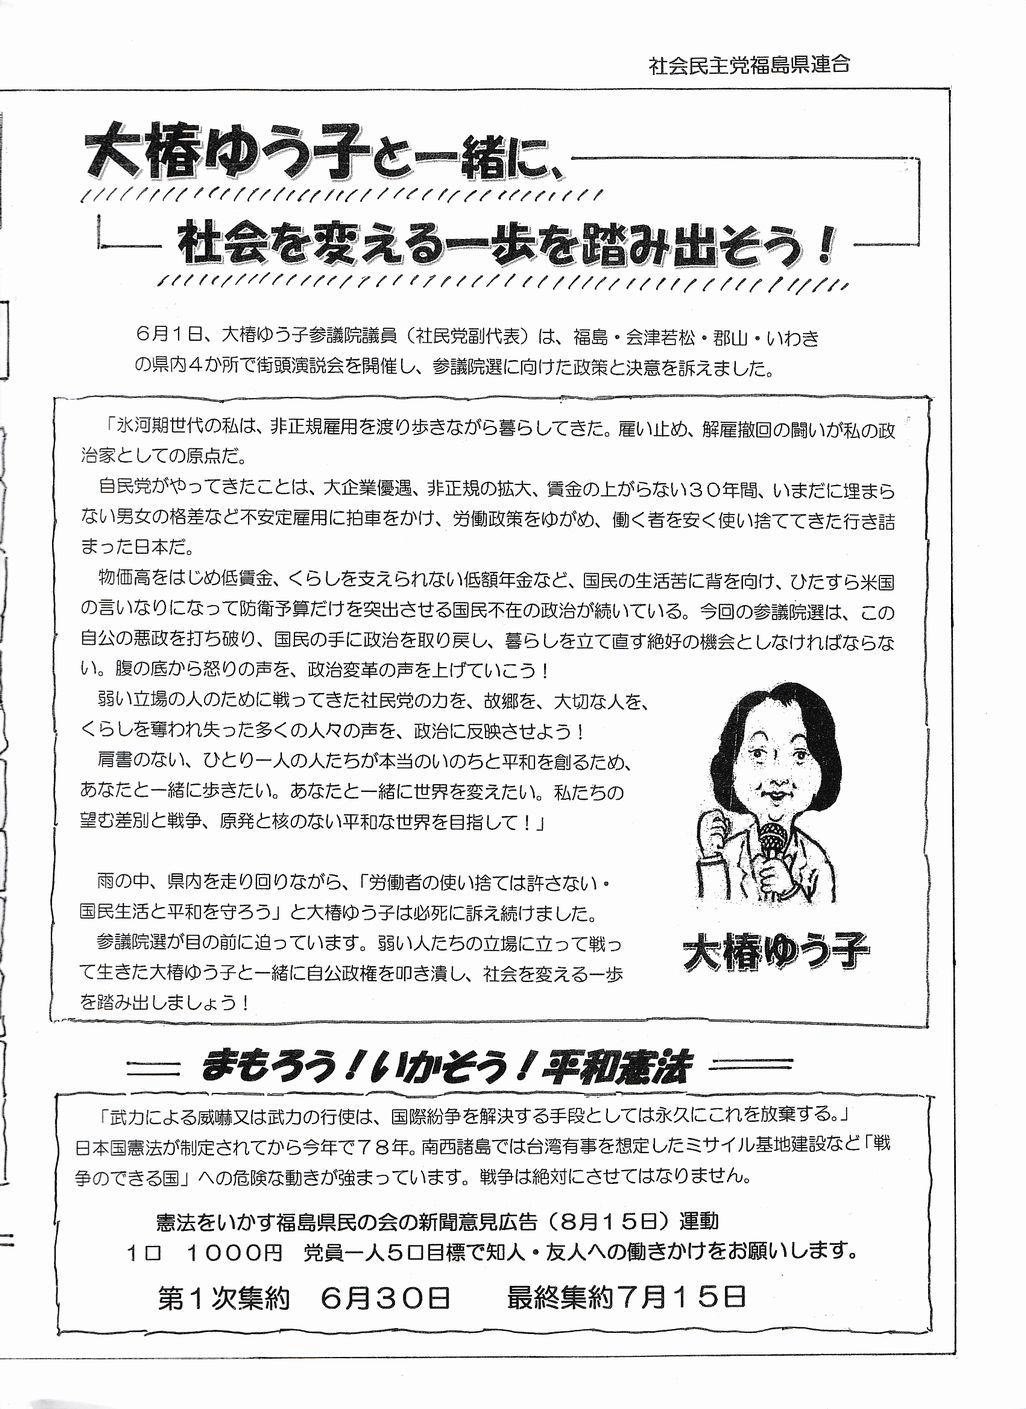 社会民主党福島県連合
大椿ゆう子と一緒に、
社会を変える一歩を踏み出そう！
６月１日、大椿ゆう子参議院議員（社民党副代表）は、福島・会津若松・郡山・いわき
の県内４か所で街頭演説会を開催し、参議院選に向けた政策と決意を訴えました。
「氷河期世代の私は、非正規雇用を渡り歩きながら暮らしてきた。雇い止め、解雇撤回の闘いが私の政
治家としての原点だ。
自民党がやってきたことは、大企業優遇、非正規の拡大、賃金の上がらない３０年間、いまだに埋まら
ない男女の格差など不安定雇用に拍車をかけ、労働政策をゆがめ、働く者を安く使い捨ててきた行き詰
まった日本だ。
物価高をはじめ低賃金、くらしを支えられない低額年金など、国民の生活苦に背を向け、ひたすら米国
の言いなりになって防衛予算だけを突出させる国民不在の政治が続いている。今回の参議院選は、この
自公の悪政を打ち破り、国民の手に政治を取り戻し、暮らしを立て直す絶好の機会としなければならな
い。腹の底から怒りの声を、政治変革の声を上げていこう！
弱い立場の人のために戦ってきた社民党の力を、故郷を、大切な人を、
くらしを奪われ失った多くの人々の声を、政治に反映させよう！
肩書のない、ひとり一人の人たちが本当のいのちと平和を創るため、
あなたと一緒に歩きたい。あなたと一緒に世界を変えたい。私たちの
望む差別と戦争、原発と核のない平和な世界を目指して！」
雨の中、県内を走り回りながら、「労働者の使い捨ては許さない・
国民生活と平和を守ろう」と大椿ゆう子は必死に訴え続けました。
参議院選が目の前に迫っています。弱い人たちの立場に立って戦っ
て生きた大椿ゆう子と一緒に自公政権を叩き潰し、社会を変える一歩
を踏み出しましょう！
大椿ゆう子
まもろう！いかそう！平和憲法
「武力による威嚇又は武力の行使は、国際紛争を解決する手段としては永久にこれを放棄する。」
日本国憲法が制定されてから今年で７８年。南西諸島では台湾有事を想定したミサイル基地建設など「戦
争のできる国」への危険な動きが強まっています。戦争は絶対にさせてはなりません。
憲法をいかす福島県民の会の新聞意見広告（８月１５日）運動
１口　１０００円　党員一人５口目標で知人・友人への働きかけをお願いします。
第１次集約　６月３０日　　最終集約７月１５日